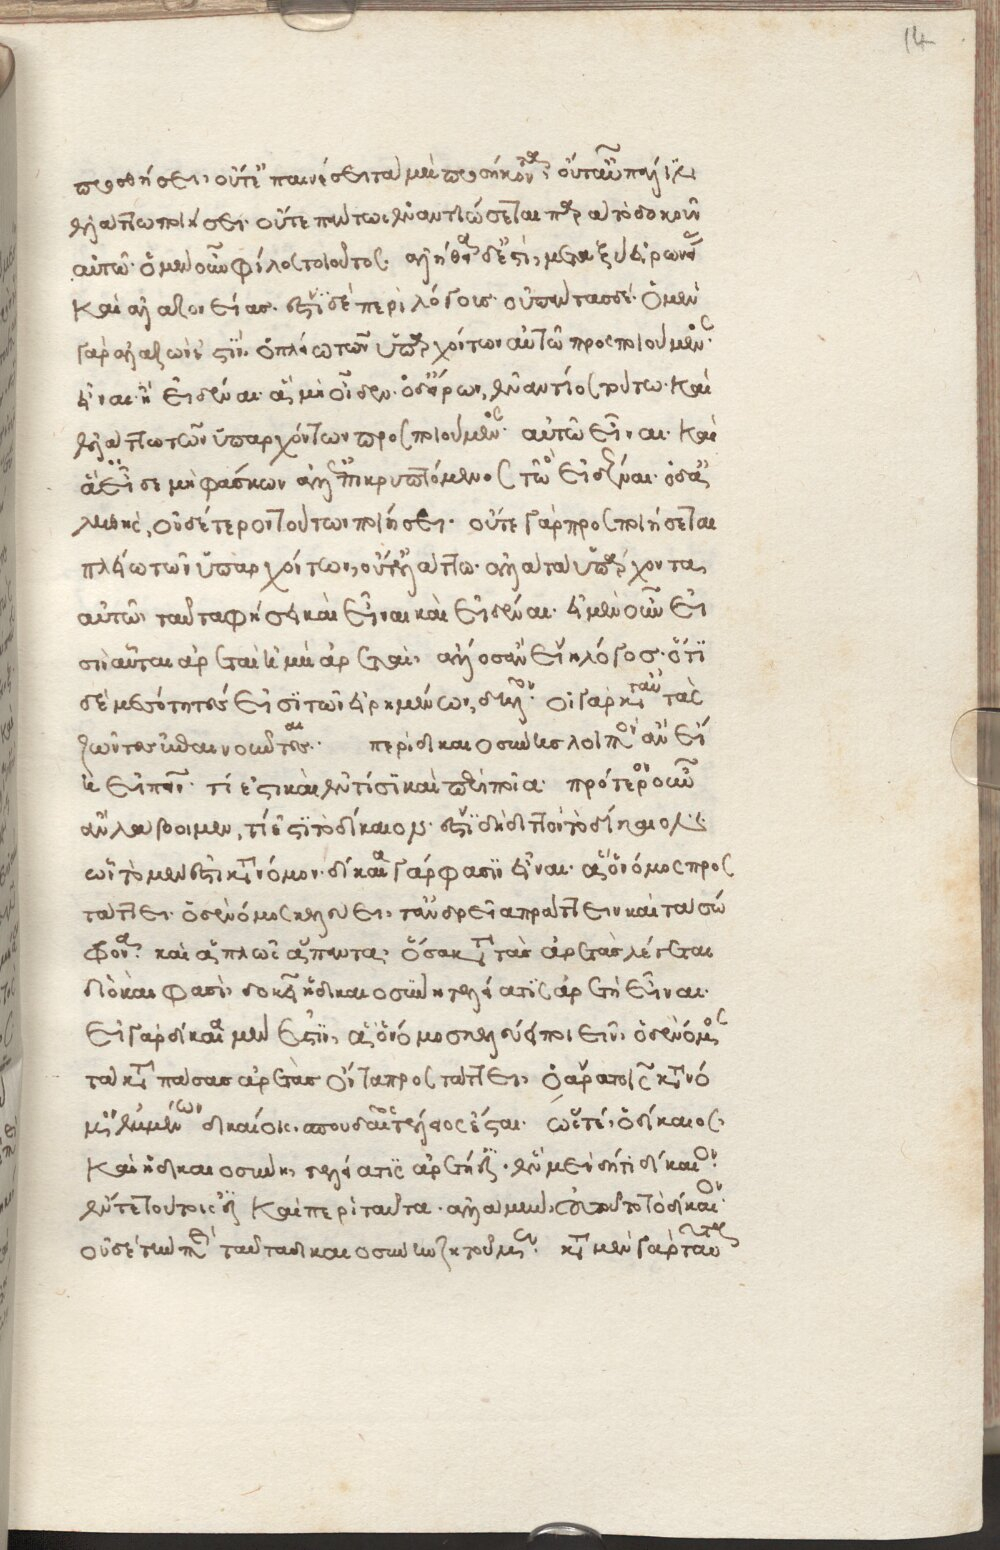 14
προσθήσει, οὔτ' ἐπαινέσει τὰ μὴ προσήκοντα, οὔτ' αὖ πάλιν
ἐλάττω ποιήσει. οὔτε πάντως ἐναντιώσεται παρὰ τὸ δοκοῦν
αὐτῷ. ὁ μὲν οὖν φίλος τοιοῦτος. ἀλήθεια δ' ἐστὶ, μεταξὺ εἰρωνείας
καὶ ἀλαζονείας. ἔστι δὲ περὶ λόγους. οὐ πάντας δέ. ὁ μὲν
γὰρ ἀλαζών ἐστιν, ὁ πλείω τῶν ὑπαρχόντων αὑτῷ προσποιούμενος
εἶναι. ἢ εἰδέναι ἃ μὴ οἶδεν. ὁ δ' εἴρων, ἐναντίος τούτω. καὶ
ἐλάττω τῶν ὑπαρχόντων προσποιούμενος αὑτῷ εἶναι. καὶ
ἃ οἶδε μὴ φάσκων ἀλλ' ἐπικρυπτόμενος τῷ εἰδέναι. ὁ δ' ἀ
ληθὴς, οὐδέτερον τούτων ποιήσει. οὔτε γὰρ προσποιήσεται
πλείω τῶν ὑπαρχόντων, οὔτ' ἐλάττω. ἀλλὰ τὰ ὑπάρχοντα
αὐτῷ, ταῦτα φήσει καὶ εἶναι καὶ εἰδέναι. εἰ μὲν οὖν εἰ
σὶν αὗται ἀρεταὶ ἢ μὴ ἀρεταὶ, ἄλλος ἂν εἴη λόγος. ὅτι
δὲ μεσότητές εἰσι τῶν εἰρημένων, δῆλον. οἱ γὰρ κατ' αὐτὰς
ζῶντες ἐπαινοῦνται. περὶ δικαιοσύνης λοιπὸν ἂν εἴ
η εἰπεῖν. τί ἐστι καὶ ἐν τίσι καὶ περὶ ποῖα. πρότερον οὖν
ἂν λάβοιμεν, τί ἐστι τὸ δίκαιον. ἔστι δὴ διττὸν τὸ δίκαιον.
ὧν τὸ μέν ἐστι κατὰ νόμον. δίκαια γάρ φασιν εἶναι. ἃ ὁ νόμος προς
τάττει. ὁ δὲ νόμος κελεύει, τἀνδρεῖα πράττειν καὶ τὰ σώ
φρονα. καὶ ἁπλῶς ἅπαντα, ὅσα κατὰ τὰς ἀρετὰς λέγεται
διὸ καὶ φασὶ, δοκεῖ ἡ δικαιοσύνη τελεία τις ἀρετὴ εἶναι.
εἰ γὰρ δίκαια μέν ἐστιν, ἃ ὁ νόμος κελεύει ποιεῖν, ὁ δὲ νόμος
τὰ κατὰ πάσας ἀρετὰς ὄντα προστάττει, ὁ ἄρα τοῖς κατὰ νό
μον ἐμμένων δικαίοις, σπουδαῖος τελέως ἔσται. ὥστε ὁ δίκαιος,
καὶ ἡ δικαιοσύνη, τελεία τις ἀρετή ἐστιν. ἓν μὲν δή τι δίκαιον
ἔν τε τούτοις ἐστὶ καὶ περὶ ταῦτα. ἀλλὰ μὴν οὐ τοῦτο τὸ δίκαιον
οὐδὲ τὴν περὶ ταῦτα δικαιοσύνην ζητοῦμεν. κατὰ μὲν γὰρ ταῦτα